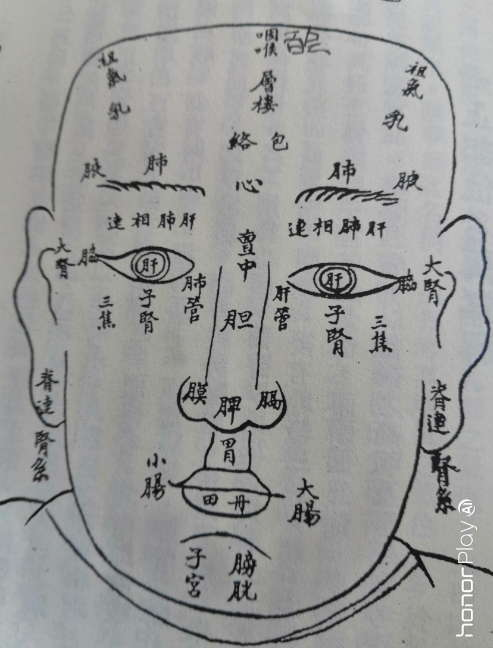 咽喉
祖氣
乳
層樓
祖氣
乳
包絡
腋
肺
心
肺
腋
肝肺相連
肝肺相連
亶中
大腎
腦
肝
肺管
肝管
肝
腦
大腎
三焦
子腎
胆
子腎
三焦
脊連腎系
膜
脾
脊連腎系
胃
小腸
丹田
大腸
子宮
膀胱
honorPlay AI